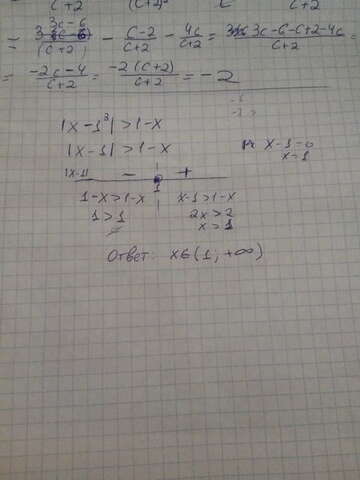 c+2 (c+2) c c+2
3c-6
= (c+2) - c-2/c+2 - 4c/c+2 = 3c-6-c+2-4c/c+2 =
= -2c-4/c+2 = -2(c+2)/c+2 = -2
|x-1³| > 1-x
|x-1| > 1-x x-1=0
x=1
|x-1| - +
1
1-x>1-x x-1>1-x
1>1 2x>2
x>1
Ответ: x6(1; +∞)